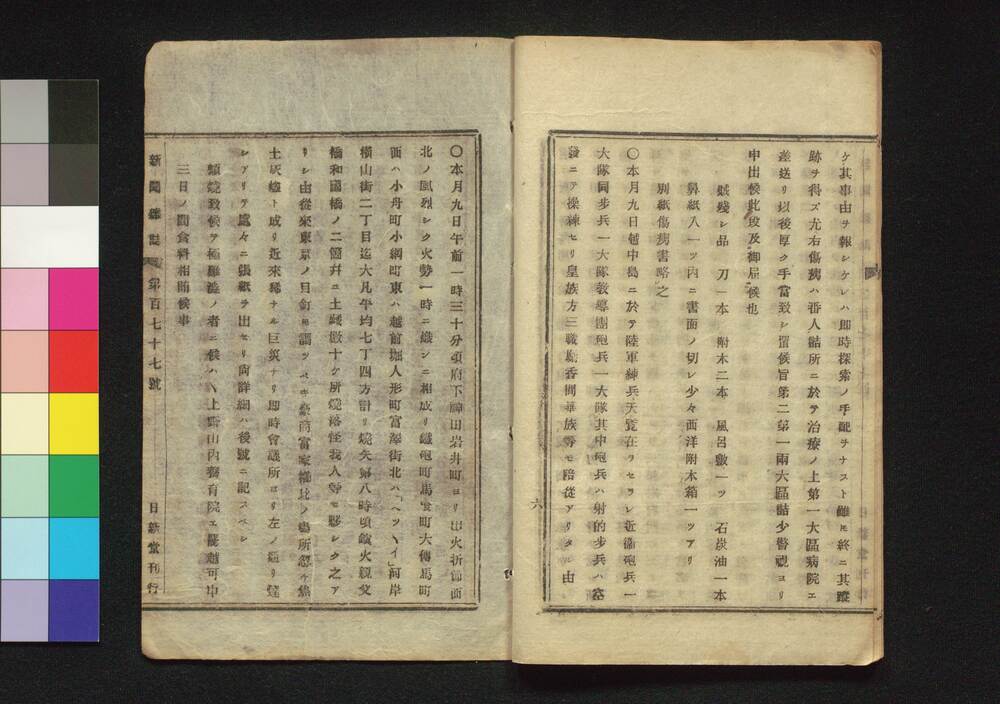 ケ其事由ヲ報シケレハ即時探索ノ手配ヲナスト雖𪜈終ニ其蹤
跡ヲ得ズ尤右傷病ハ番人詰所ニ於テ治療ノ上第一大區病院エ
差送リ以後厚ク手當致シ置候旨第二第一兩大區詰少警視ヨリ
申出候此段及御届候也
賊殘シ品 刀一本 附木二本 風呂敷一ツ 石炭油一本
鼻紙八一ツ内ニ書面ノ切レ少々西洋附木箱一ツアリ
別紙傷病書略之
〇本月九日越中島ニ於テ陸軍練兵天覧在ラセラレ近衞砲兵一
大隊同歩兵一大隊敎導團砲兵一大隊其中砲兵ハ射的歩兵ハ空
發ニテ操練セリ皇族方三職麝香間華族等モ陪從アリタシ由
六
〇本月九日午前一時三十分頃府下神田岩井町ヨリ出火折節西
北ノ風烈シク火勢一時ニ熾シニ相成リ鐵砲町馬喰町大傳馬町
西ハ小舟町小網町東ハ越前堀人形町富澤街北ハ「ヘツ丶イ」河岸
横山街二丁目迄大凡平均七丁四方計リ燒失第八時頃鎭火親父
橋和國橋ノ二箇并ニ土藏數十ケ所燒落怪我人等モ夥シク之ア
リシ由從來東京ノ目貫𪜈謂ツベキ豪商富家櫛比ノ場所忽ケ焦
土灰燼ト成リ近來稀ナル巨災ナリ即時會議所ヨリ左ノ通リ達
シアリテ處々ニ張紙ヲ出セリ尚詳細ハ後號ニ記スベシ
類燒致候テ極難澁ノ者ニ候ハ丶上野山内養育院エ罷越可申
三日ノ間食料相賄候事
新聞雜誌 第百七十七號 日新堂刊行